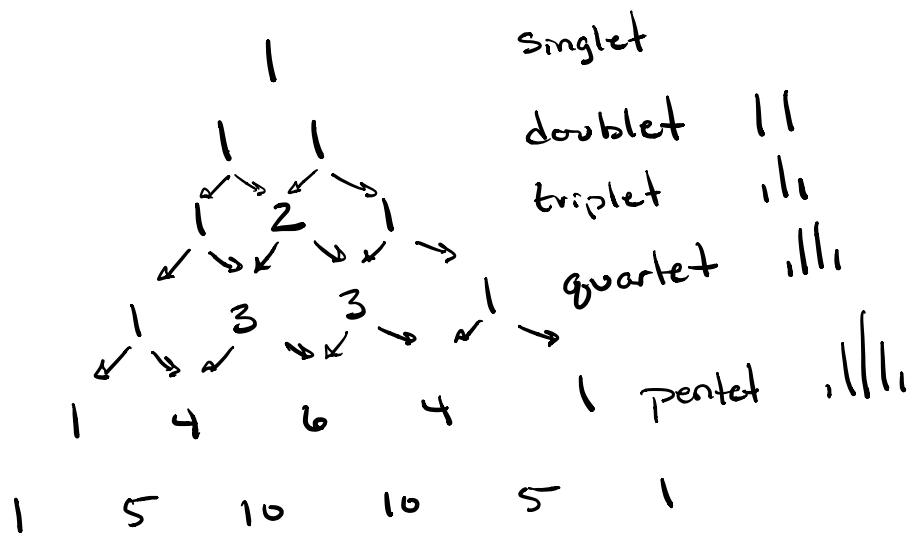 1 singlet
1 1 doublet
1 2 1 triplet
1 3 3 1 quartet
1 4 6 4 1 pentet
1 5 10 10 5 1